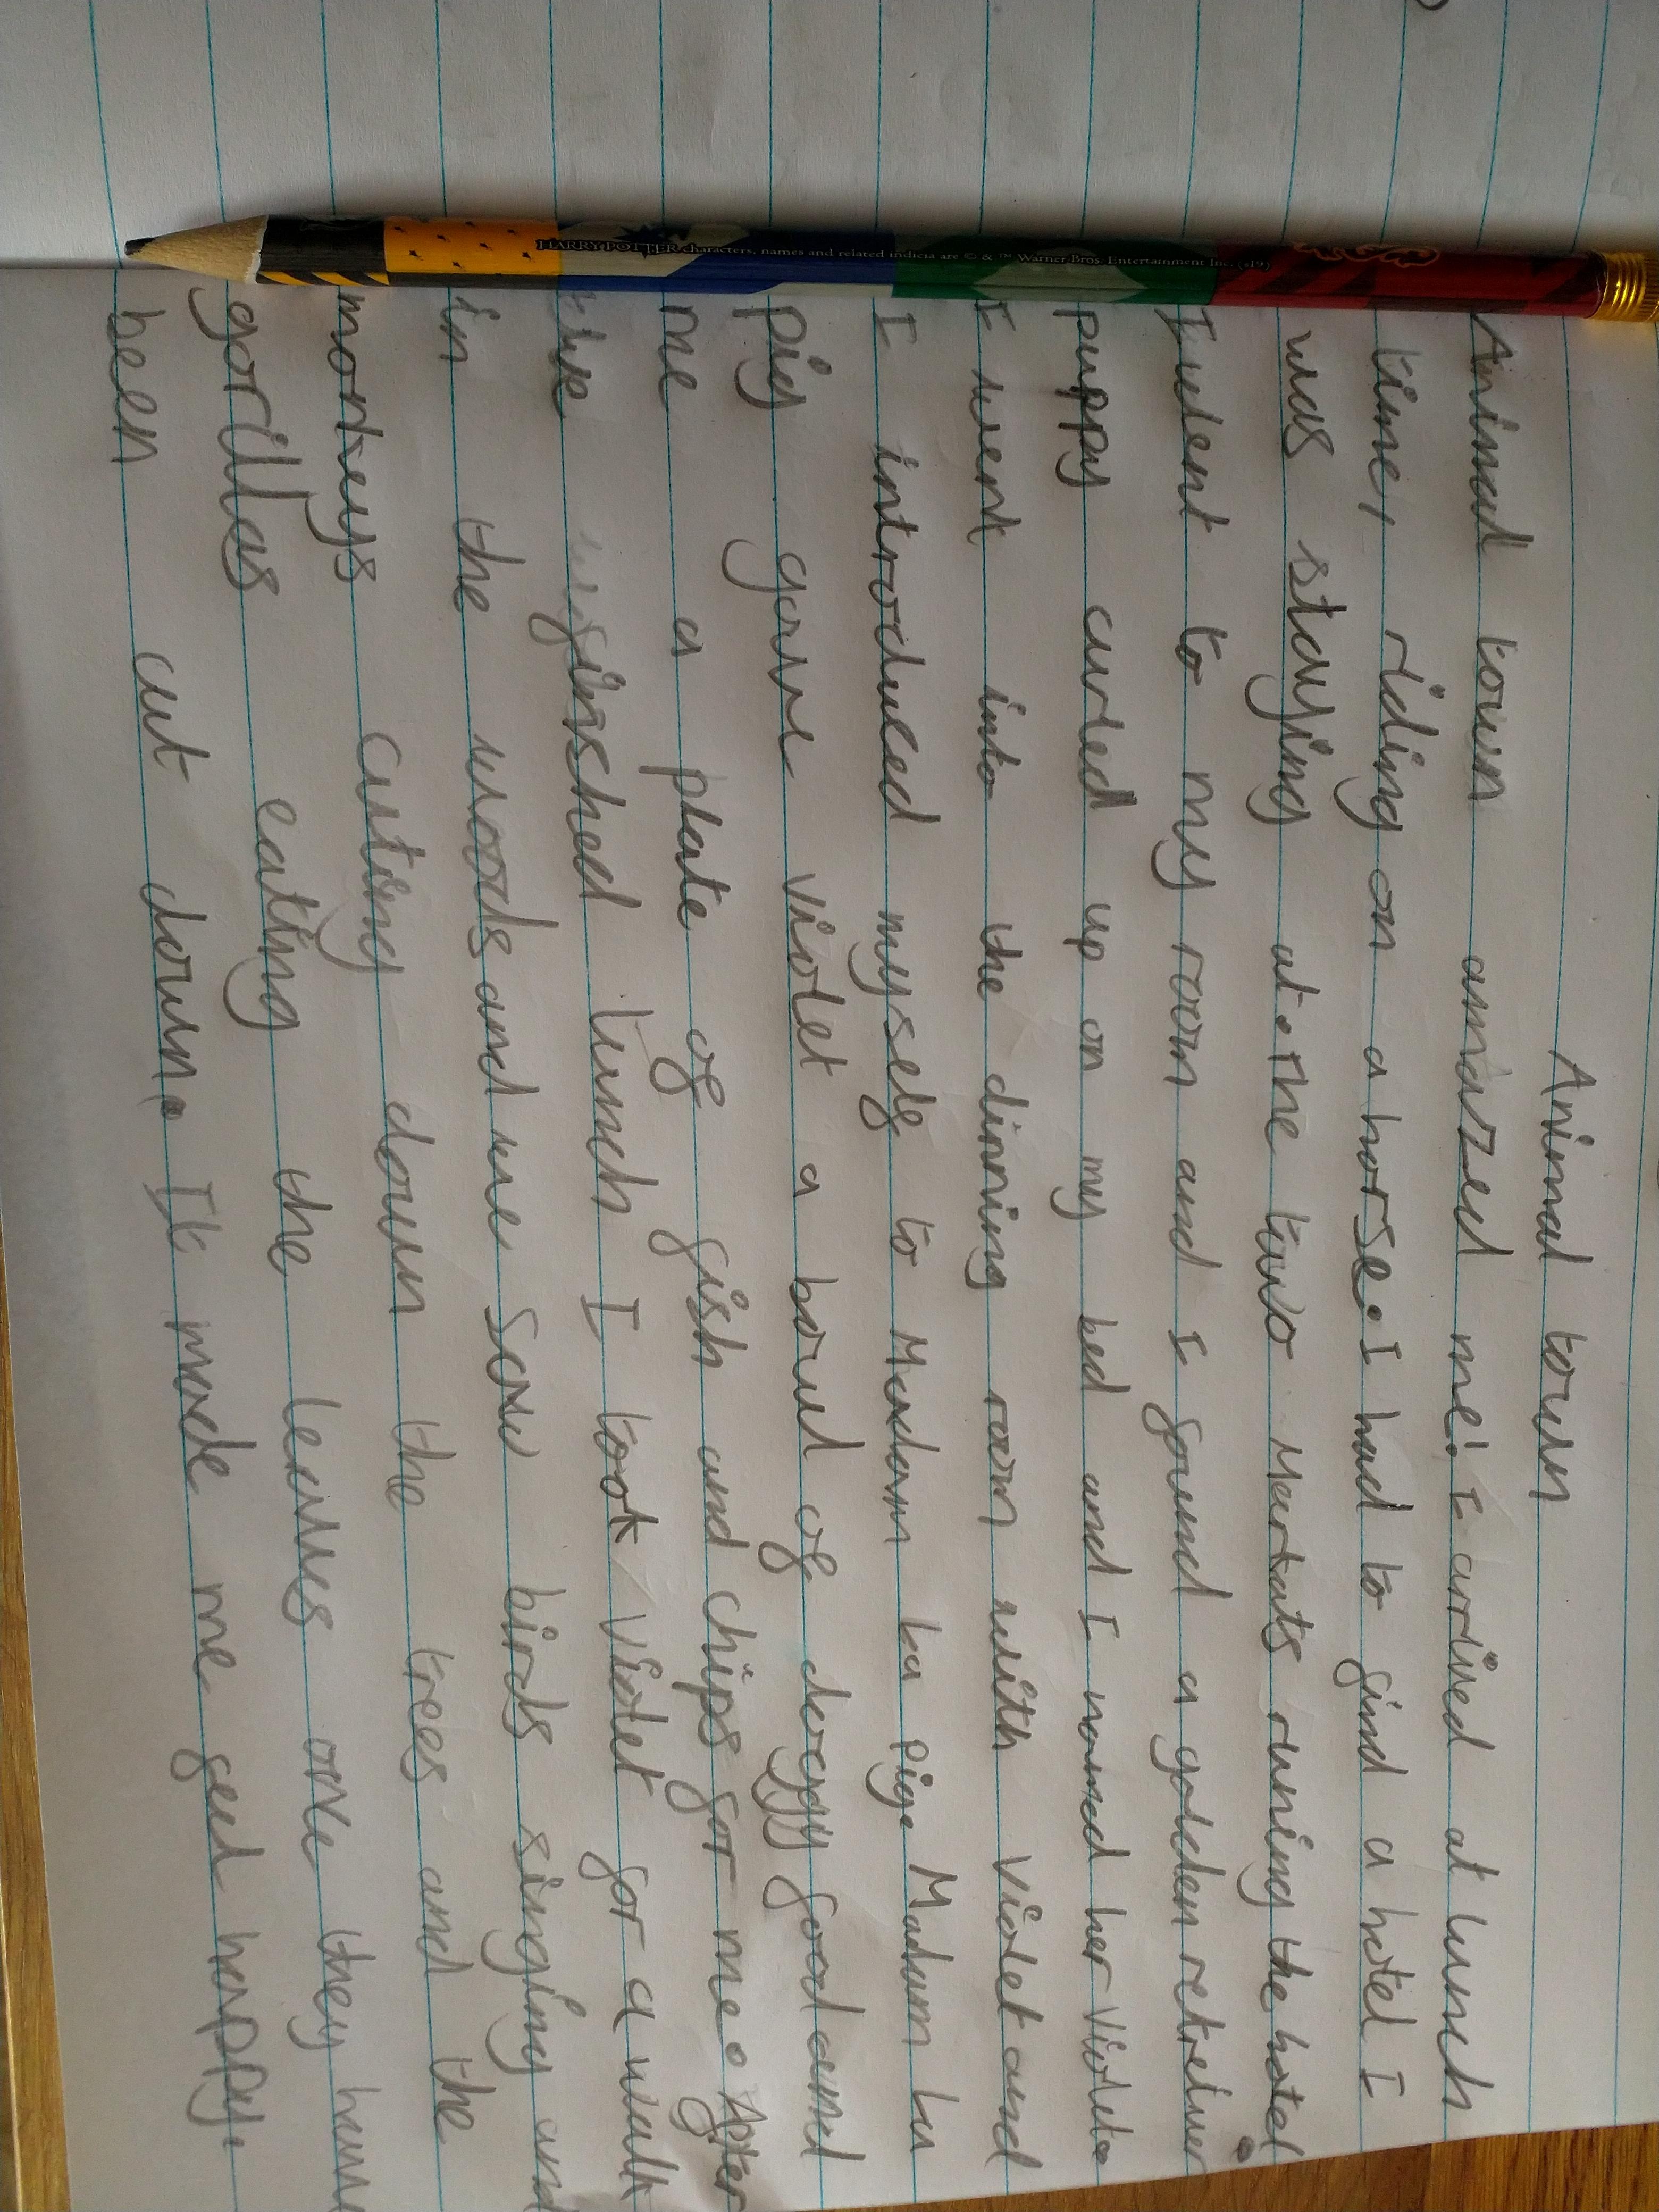 Animal town
Animal town amazed me! I arrived at lunch
time, riding on a horse. I had to find a hotel I
was staying at. The two Merkats runing the hotel.
I went to my room and I found a golden retreiver
puppy curled up on my bed and I named her Violet.
I went into the dinning room with Violet and
I introduced myself to Madam La pig. Madam La
pig gave Violet a bowl of doggy food and
me a plate of fish and chips for me. After
the finshed lunch I took Violet for a walk
in the woods and we Saw birds singing and
monkeys cuting down the trees and the
gorillas eating the leaves once they have
been cut down. It made me feel happy.
HARRY POTTER characters, names and related indicia are © & ™ Warner Bros. Entertainment Inc. (s19)